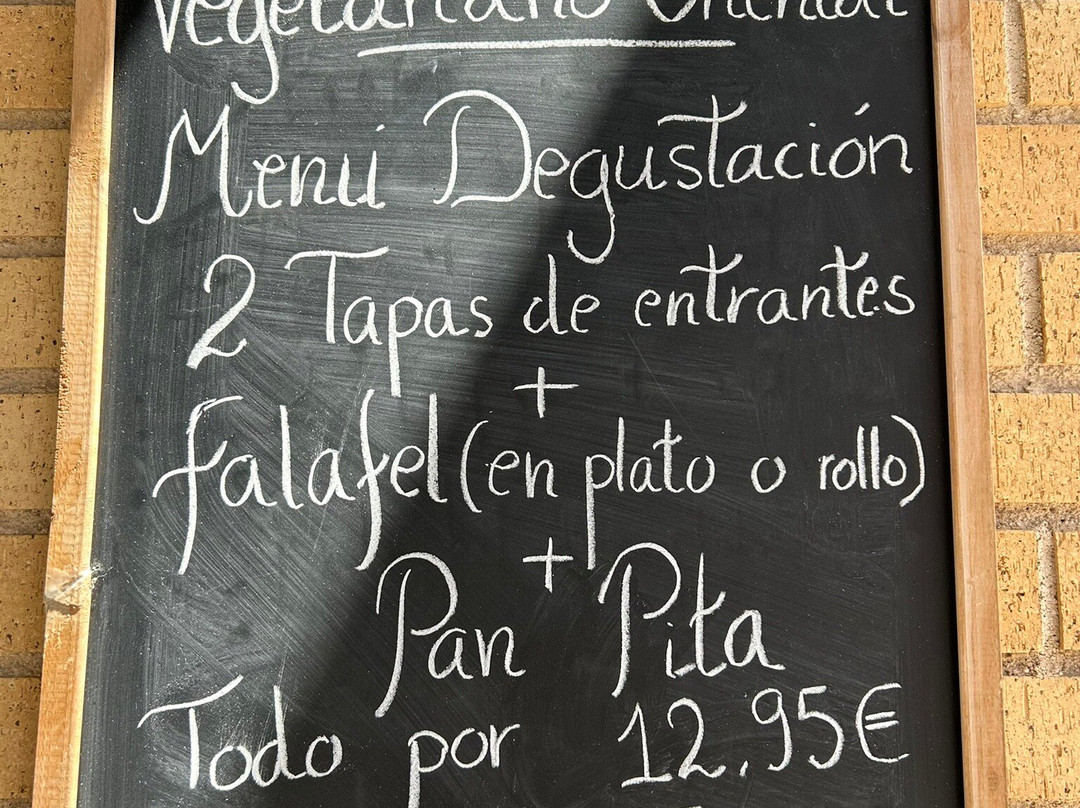 Vegetariano Oriental
Menú Degustación
2 Tapas de entrantes
+
falafel (en plato o rollo)
+
Pan Pita
Todo por 12.95€